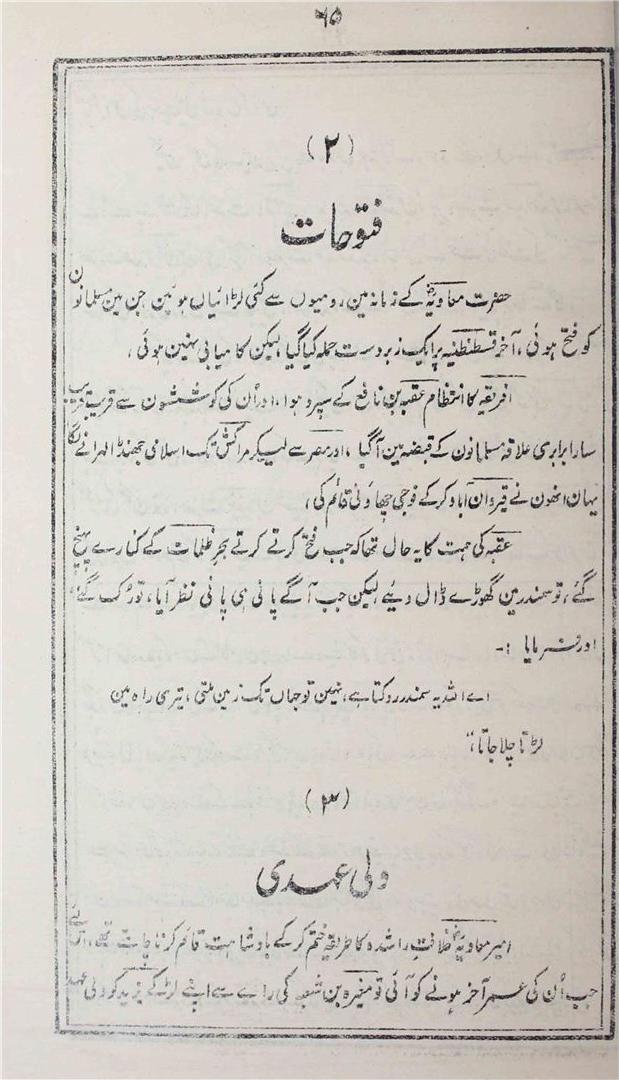 ۶۵
(۲)
فتوحات
حضرت معاویہؓ کے زمانہ مین رومیوں سے کئی لڑائیاں ہوئین جن مین مسلمانون
کو فتح ہوئی، آخر قسطنطنیہ پر ایک زبردست حملہ کیا گیا لیکن کامیابی نہین ہوئی،
افریقہ کا انتظام عقبہ بن نافع کے سپرد ہوا، اور اُن کی کوششون سے قریب قریب
سارا بربری علاقہ مسلمانون کے قبضہ مین آگیا، اور مصر سے لیکر مراکش تک اسلامی جھنڈا لہرانے لگا
یہان انھون نے قیروان آباد کرکے فوجی چھاؤنی قائم کی،
عقبہ کی ہمت کا یہ حال تھا کہ جب فتح کرتے کرتے بحرِ ظلمات کے کنارے پہنچ
گئے، تو سمندر مین گھوڑے ڈال دیئے لیکن جب آگے پانی ہی پانی نظر آیا، تو رُک گئے،
اور فرمایا :-
اے اللہ یہ سمندر روکتا ہے، نہین تو جہاں تک زمین ملتی، تیری راہ مین
لڑتا چلا جاتا،"
(۳)
ولی عہدی
امیر معاویہؓ خلافتِ راشدہ کا طریقہ ختم کرکے بادشاہت قائم کرنا چاہتے تھے،
جب اُن کی عمر آخر ہونے کو آئی تو مغیرہ بن شعبہ کی راے سے اپنے لڑکے یزید کو ولی عہد